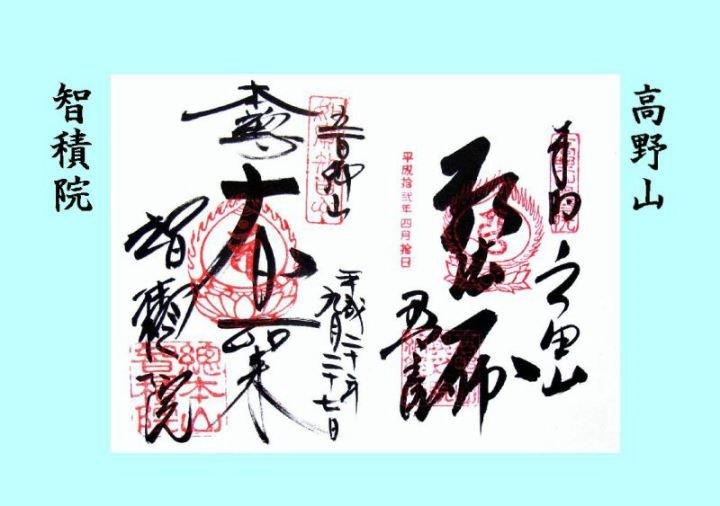 高野山
奉拝
高野山
弘法
大師
平成拾弐年四月拾日
奥之院
五百佛山
平成二十二年
九月二十七日
本尊
大日如来
智積院
總本山
智積院
智積院